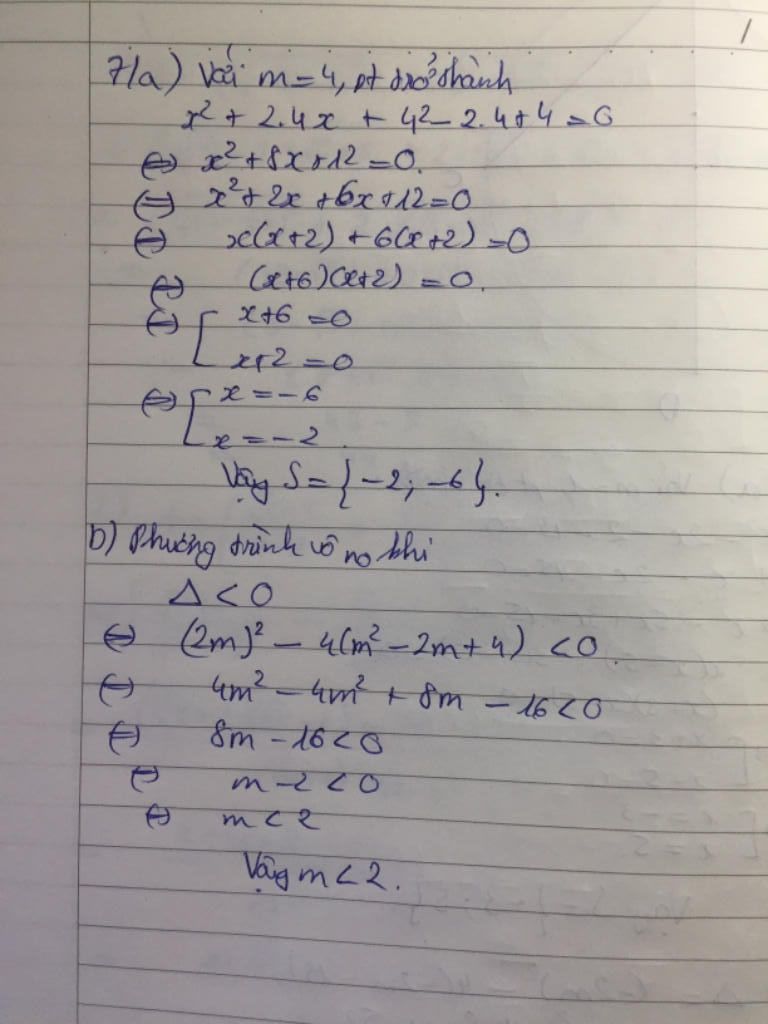 1
7/a) Với m = 4, pt trở thành
x² + 2.4x + 4² - 2.4 + 4 = 0
⇔ x² + 8x + 12 = 0.
⇔ x² + 2x + 6x + 12 = 0
⇔ x(x+2) + 6(x+2) = 0
⇔ (x+6)(x+2) = 0.
⇔ [ x+6 = 0
x+2 = 0
⇔ [ x = -6
x = -2.
Vậy S = {-2; -6}.
b) Phương trình vô no khi
Δ < 0
⇔ (2m)² - 4(m² - 2m + 4) < 0.
⇔ 4m² - 4m² + 8m - 16 < 0
⇔ 8m - 16 < 0
⇔ m - 2 < 0
⇔ m < 2
Vậy m < 2.